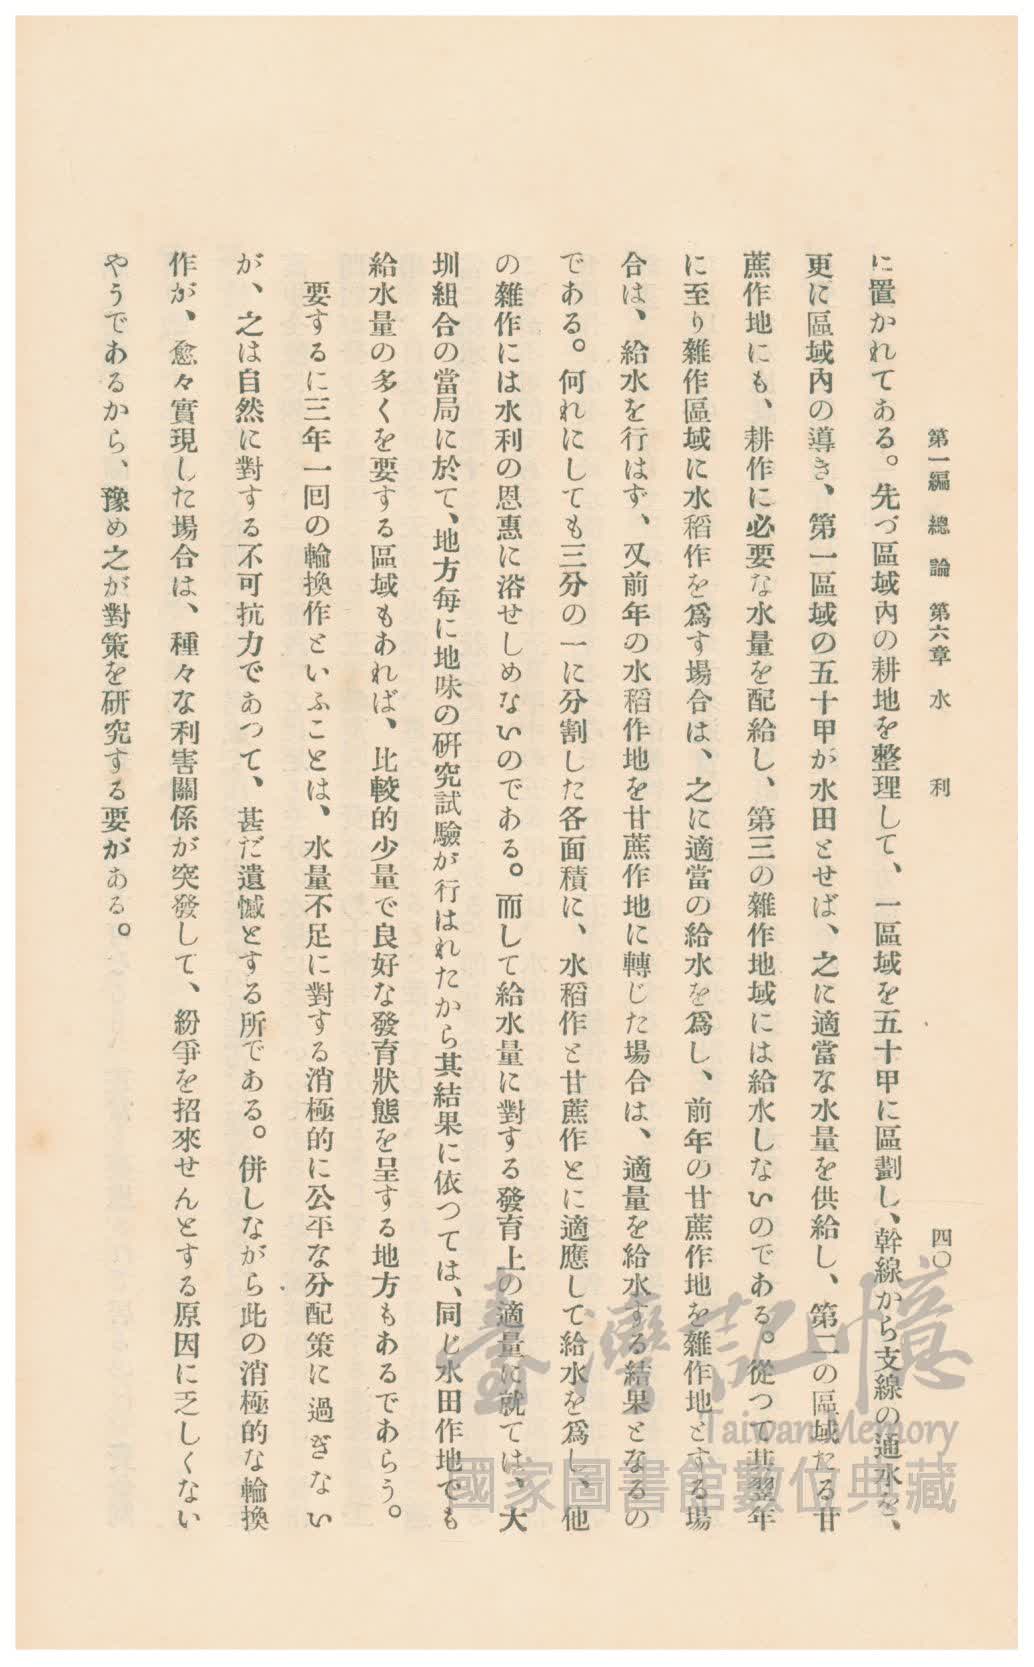 第一編　總　論　第六章　水　利　　四〇
に置かれてある。先づ區域內の耕地を整理して、一區域を五十甲に區劃し、幹線から支線の通水を、
更に區域內の導き、第一區域の五十甲が水田とせば、之に適當な水量を供給し、第二の區域たる甘
蔗作地にも、耕作に必要な水量を配給し、第三の雜作地域には給水しないのである。從つて其翌年
に至り雜作區域に水稻作を爲す場合は、之に適當の給水を爲し、前年の甘蔗作地を雜作地とする場
合は、給水を行はず、又前年の水稻作地を甘蔗作地に轉じた場合は、適量を給水する結果となるの
である。何れにしても三分の一に分割した各面積に、水稻作と甘蔗作とに適應して給水を爲し、他
の雜作には水利の恩惠に浴せしめないのである。而して給水量に對する發育上の適量に就ては、大
圳組合の當局に於て、地方每に地味の硏究試驗が行はれたから其結果に依つては、同じ水田作地でも
給水量の多くを要する區域もあれば、比較的少量で良好な發育狀態を呈する地方もあるであらう。
要するに三年一回の輪換作といふことは、水量不足に對する消極的に公平な分配策に過ぎない
が、之は自然に對する不可抗力であつて、甚だ遺憾とする所である。併しながら此の消極的な輪換
作が、愈々實現した場合は、種々な利害關係が突發して、紛爭を招來せんとする原因に乏しくない
やうであるから、豫め之が對策を硏究する要がある。
臺灣記憶
Taiwan Memory
國家圖書館數位典藏